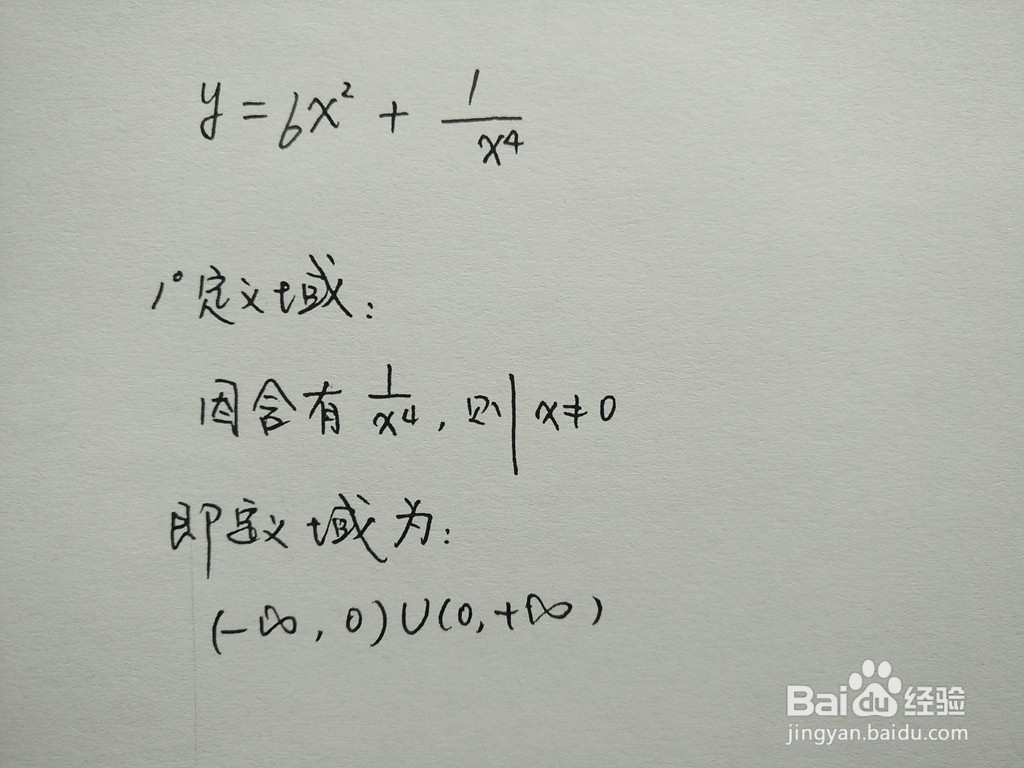 y = 6x² + 1/x⁴
1° 定义域:
因含有 1/x⁴, 则| x≠0
即定义域为:
(-∞, 0)∪(0, +∞)
Baidu经验
jingyan.baidu.com